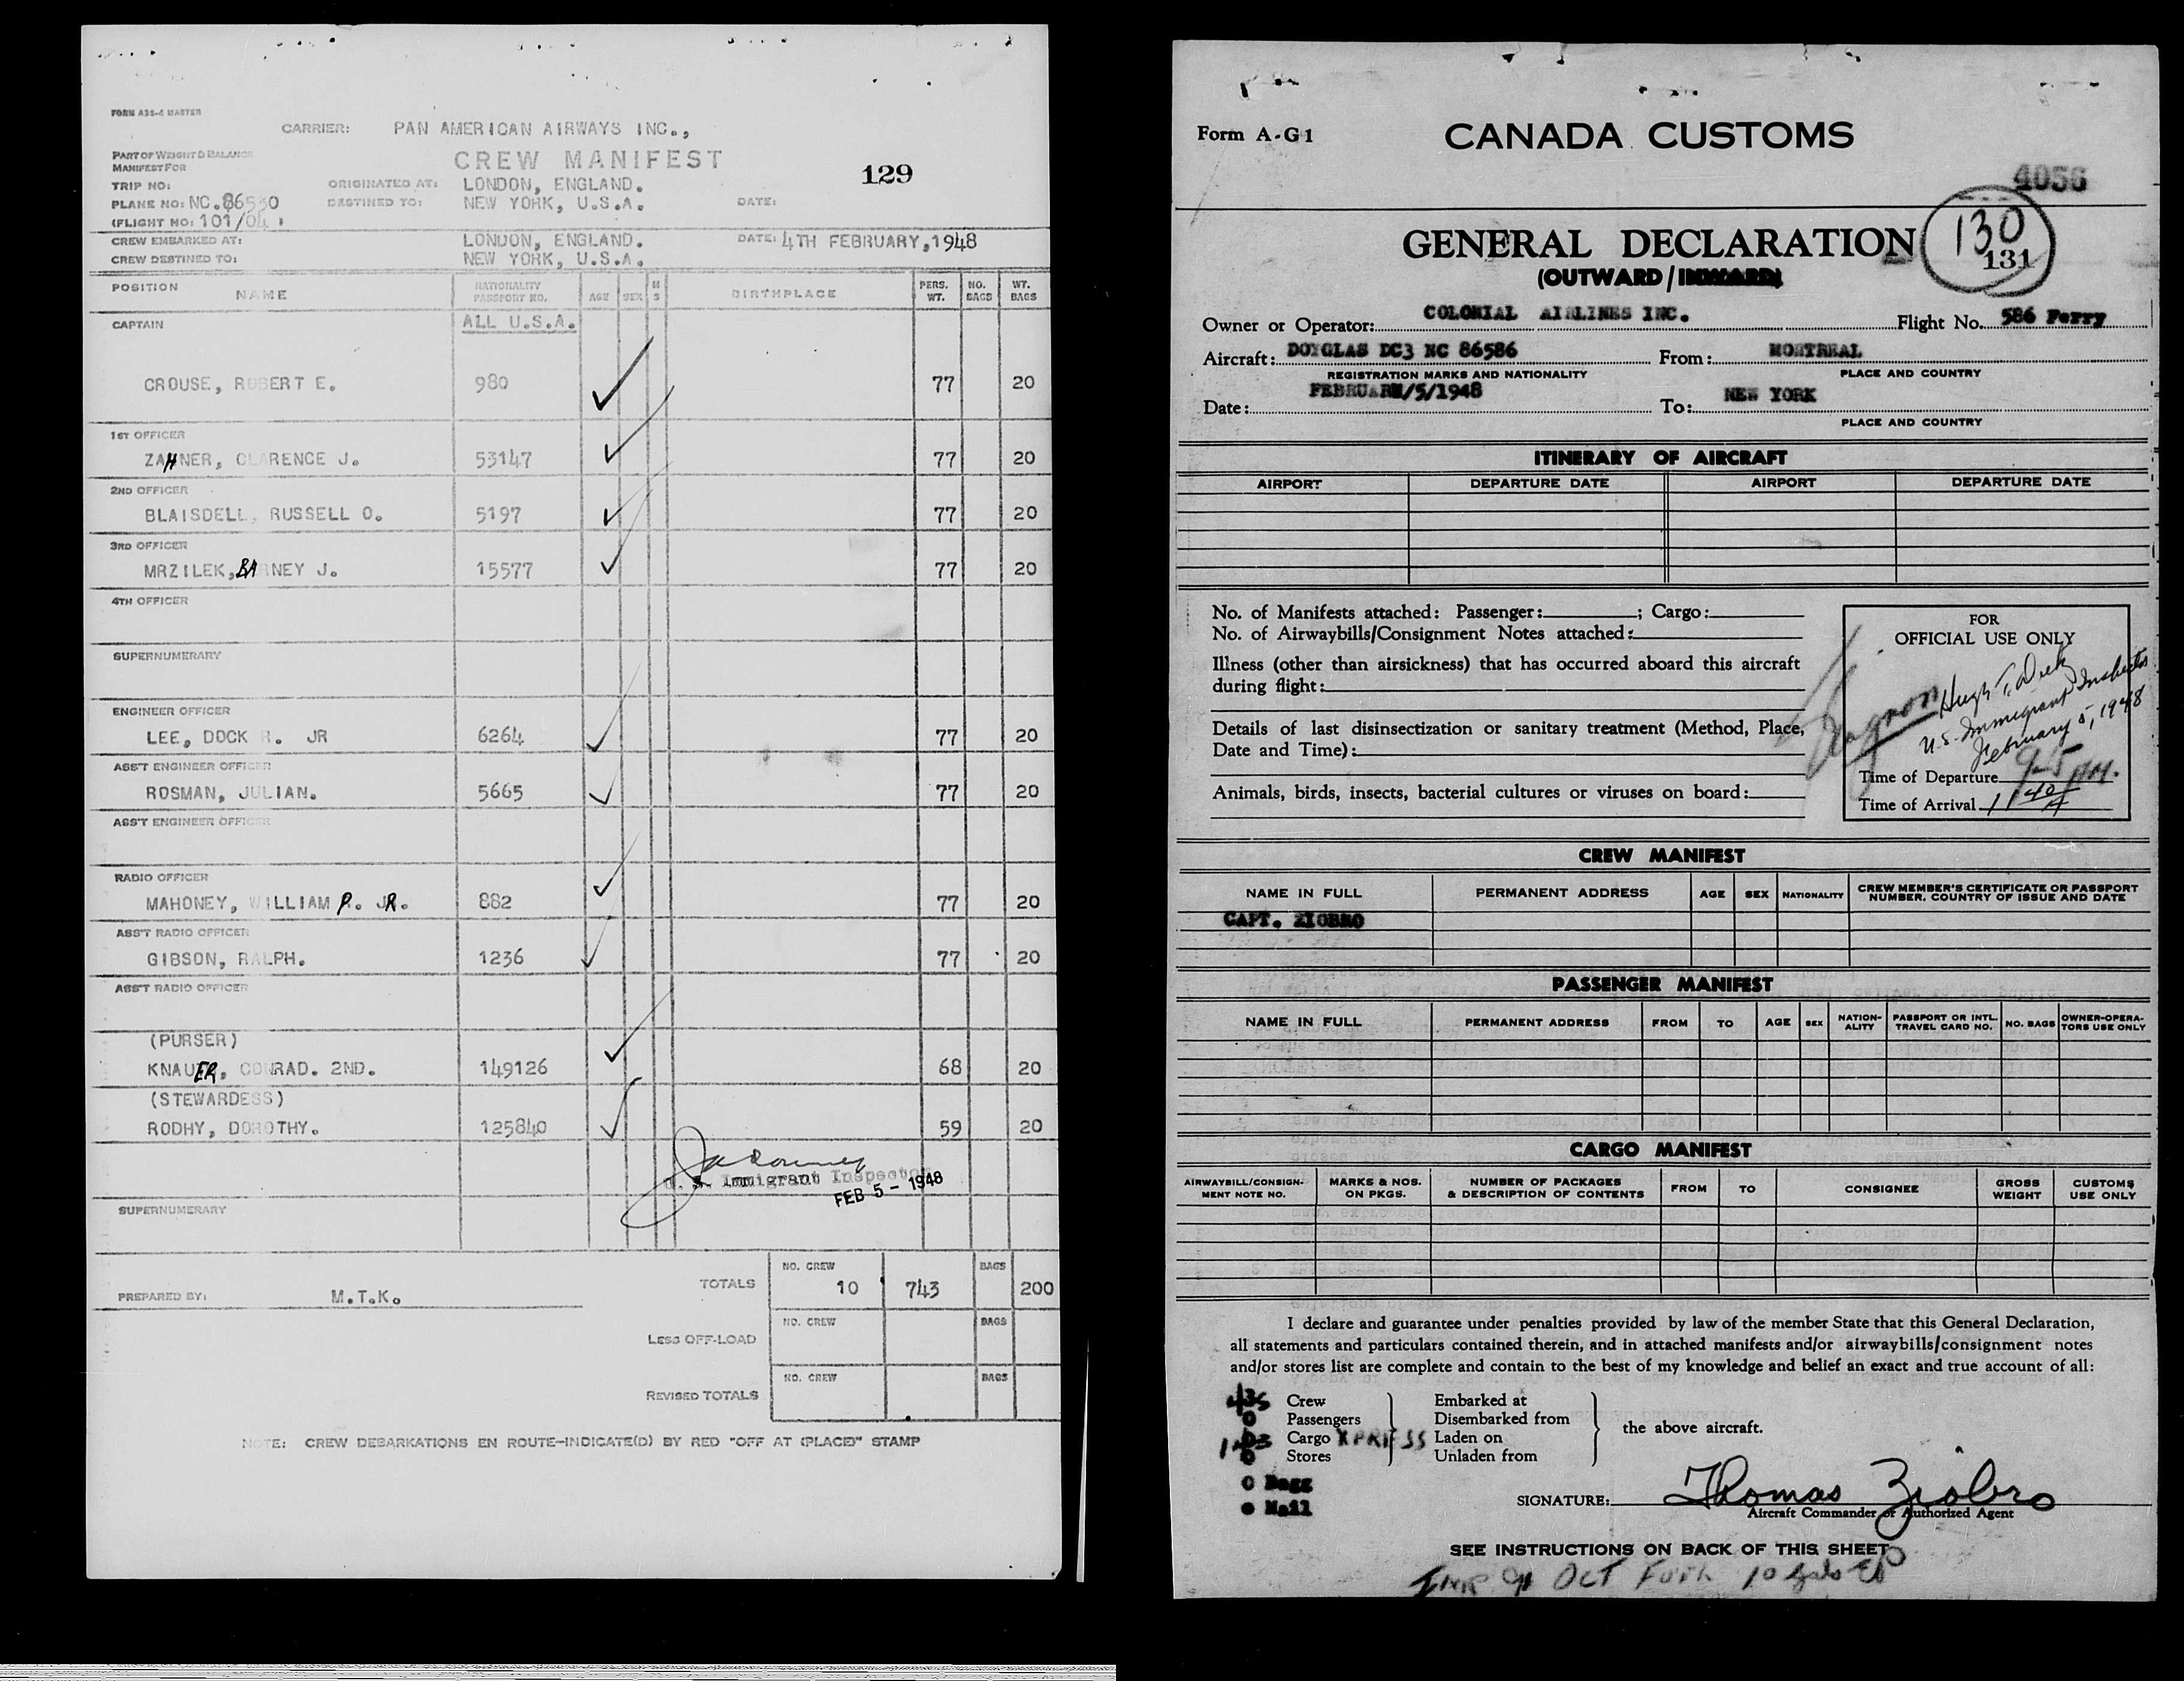 FORM ASS-4 MASTER
CARRIER: PAN AMERICAN AIRWAYS INC.,
PART OF WEIGHT & BALANCE
MANIFEST FOR
CREW MANIFEST
129
TRIP NO:
ORIGINATED AT: LONDON, ENGLAND.
PLANE NO: NC.86530
DESTINED TO: NEW YORK, U.S.A. DATE:
(FLIGHT NO: 101/04 )
CREW EMBARKED AT: LONDON, ENGLAND. DATE: 4TH FEBRUARY,1948
CREW DESTINED TO: NEW YORK, U.S.A.
POSITION NAME NATIONALITY PASSPORT NO. AGE SEX M S BIRTHPLACE PERS. WT. NO. BAGS WT. BAGS
CAPTAIN ALL U.S.A.
CROUSE, ROBERT E. 980 77 20
1ST OFFICER
ZAHNER, CLARENCE J. 53147 77 20
2ND OFFICER
BLAISDELL, RUSSELL O. 5197 77 20
3RD OFFICER
MRZILEK, BARNEY J. 15577 77 20
4TH OFFICER
SUPERNUMERARY
ENGINEER OFFICER
LEE, DOCK R. JR 6264 77 20
ASS'T ENGINEER OFFICER
ROSMAN, JULIAN. 5665 77 20
ASS'T ENGINEER OFFICER
RADIO OFFICER
MAHONEY, WILLIAM P. JR. 882 77 20
ASS'T RADIO OFFICER
GIBSON, RALPH. 1236 77 20
ASS'T RADIO OFFICER
(PURSER)
KNAUER, CONRAD. 2ND. 149126 68 20
(STEWARDESS)
RODHY, DOROTHY. 125840 59 20
U. S. Immigrant Inspector
FEB 5 - 1948
SUPERNUMERARY
NO. CREW BAGS
TOTALS 10 743 200
PREPARED BY: M.T.K.
NO. CREW BAGS
LESS OFF-LOAD
NO. CREW BAGS
REVISED TOTALS
NOTE: CREW DEBARKATIONS EN ROUTE-INDICATE(D) BY RED "OFF AT (PLACE)" STAMP
Form A-G1
CANADA CUSTOMS
4056
130
131
GENERAL DECLARATION
(OUTWARD/INWARD)
Owner or Operator: COLONIAL AIRLINES INC. Flight No. 586 Ferry
Aircraft: DOYGLAS DC3 NC 86586 From: MONTREAL
REGISTRATION MARKS AND NATIONALITY PLACE AND COUNTRY
Date: FEBRUARY/5/1948 To: NEW YORK
PLACE AND COUNTRY
ITINERARY OF AIRCRAFT
AIRPORT DEPARTURE DATE AIRPORT DEPARTURE DATE
No. of Manifests attached: Passenger: ; Cargo:
No. of Airwaybills/Consignment Notes attached:
Illness (other than airsickness) that has occurred aboard this aircraft
during flight:
Details of last disinsectization or sanitary treatment (Method, Place,
Date and Time):
Animals, birds, insects, bacterial cultures or viruses on board:
FOR
OFFICIAL USE ONLY
U.S. Immigrant Inspector
February 5, 1948
Time of Departure
Time of Arrival
CREW MANIFEST
NAME IN FULL PERMANENT ADDRESS AGE SEX NATIONALITY CREW MEMBER'S CERTIFICATE OR PASSPORT NUMBER, COUNTRY OF ISSUE AND DATE
CAPT. ZIOBRO
PASSENGER MANIFEST
NAME IN FULL PERMANENT ADDRESS FROM TO AGE SEX NATION-ALITY PASSPORT OR INTL. TRAVEL CARD NO. NO. BAGS OWNER-OPERA-TORS USE ONLY
CARGO MANIFEST
AIRWAYBILL/CONSIGN-MENT NOTE NO. MARKS & NOS. ON PKGS. NUMBER OF PACKAGES & DESCRIPTION OF CONTENTS FROM TO CONSIGNEE GROSS WEIGHT CUSTOMS USE ONLY
I declare and guarantee under penalties provided by law of the member State that this General Declaration,
all statements and particulars contained therein, and in attached manifests and/or airwaybills/consignment notes
and/or stores list are complete and contain to the best of my knowledge and belief an exact and true account of all:
Crew Embarked at
0 Passengers Disembarked from
Cargo XPRESS Laden on the above aircraft.
Stores Unladen from
0 Bagg
Mail
SIGNATURE: Thomas Ziobro
Aircraft Commander or Authorized Agent
SEE INSTRUCTIONS ON BACK OF THIS SHEET